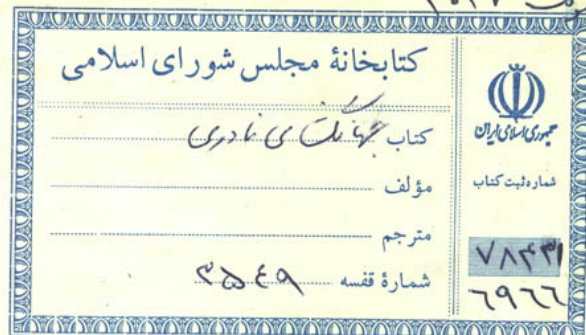 ۱۰۱۷
کتابخانهٔ مجلس شورای اسلامی
کتاب جهانگشای نادری
مؤلف
مترجم
شمارهٔ قفسه ۳۵۴۹
جمهوری اسلامی ایران
شماره ثبت کتاب
۷۸۴۳۱
۶۹۶۶